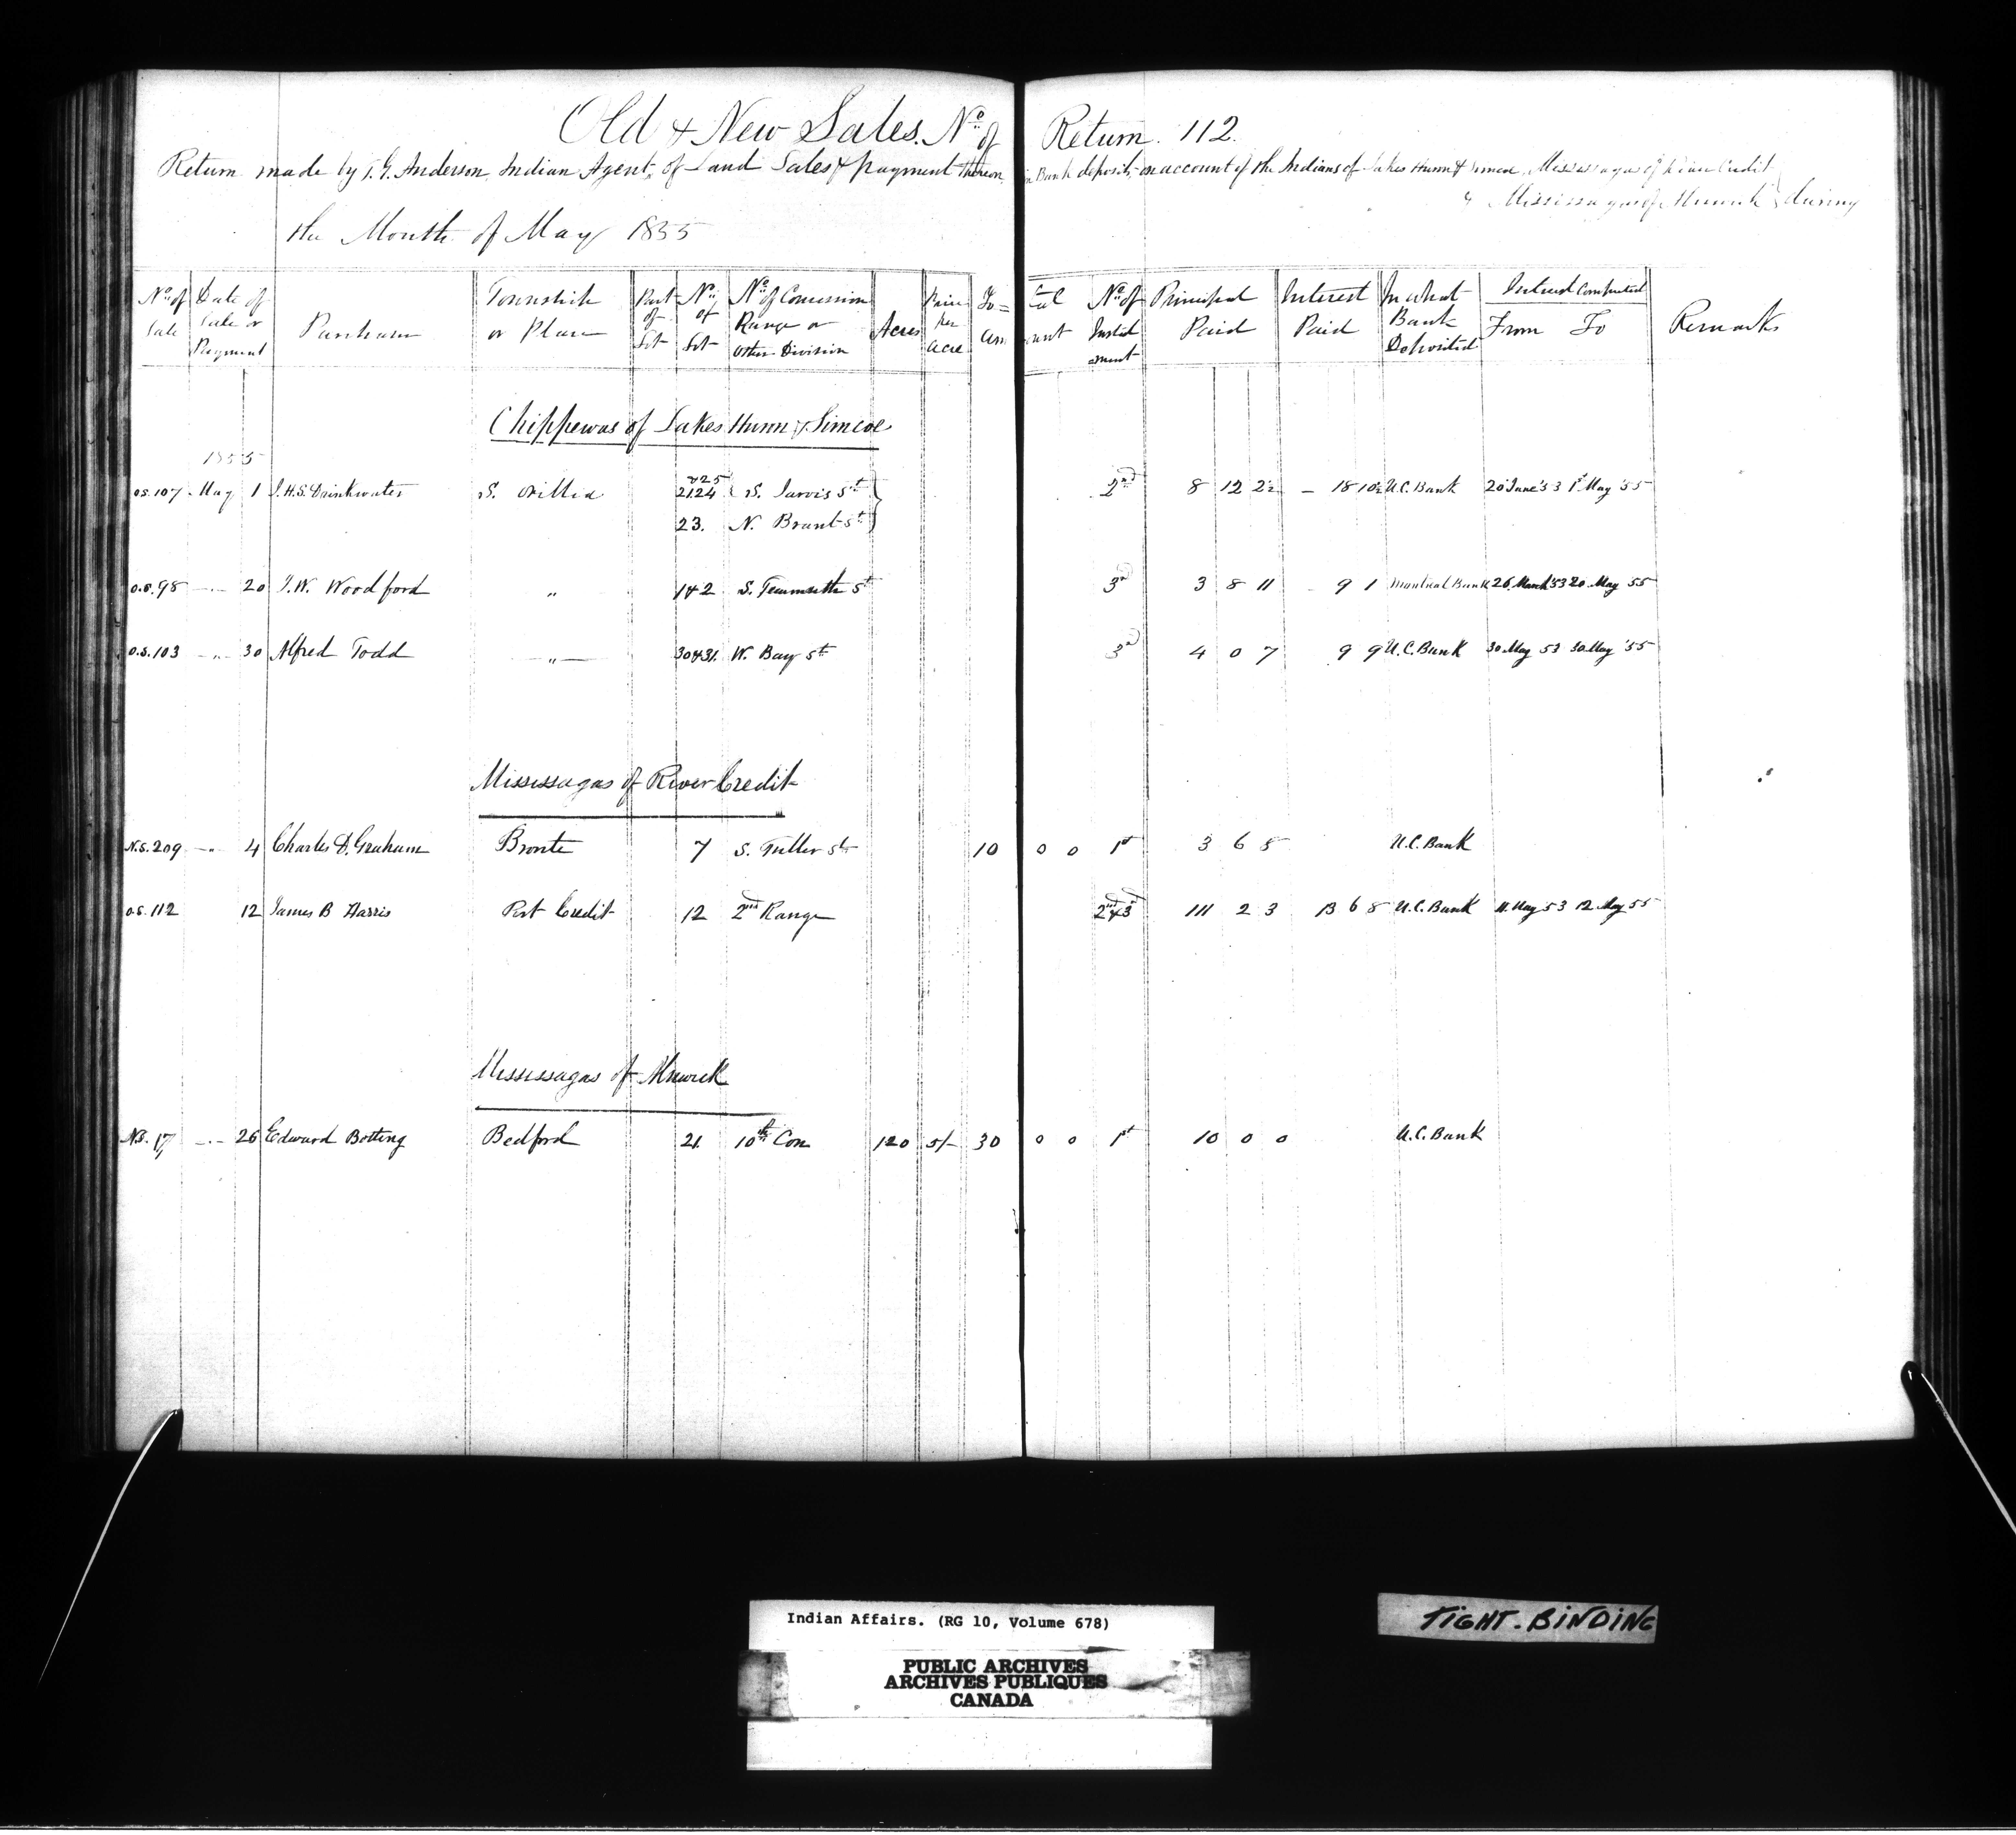 Old & New Sales. No. of Return. 112.
Return made by T. G. Anderson, Indian Agent, of Land Sales & payment thereon, in Bank deposits, on account of the Indians of Lakes Huron & Simcoe, Mississagas of River Credit
& Mississagas of Alnwick } during
the Month of May 1855
No. of Sale | Date of Sale or Payment | Purchaser | Township or Place | Part of Lot | No. of Lot | No. of Concession Range or other Division | Acres | Price per Acre | To=tal Amount | No. of Instalment | Principal Paid | Interest Paid | In what Bank Deposited | Interest Computed From To | Remarks
Chippewas of Lakes Huron & Simcoe
1855
O.S. 107 May 1 J.H.S. Drinkwater S. Orillia 21 24 & 25 S. Jarvis St } 2nd 8 12 2½ – 18 10½ U.C. Bank 20 June '53 1st May '55
23. N. Brant St
O.S. 98 -"- 20 J.W. Woodford " 1 & 2 S. Tecumseth St 3d 3 8 11 - 9 1 Montreal Bank 26 March '53 20 May 55
O.S. 103 -"- 30 Alfred Todd -"- 30 & 31. W. Bay St 3d 4 0 7 9 9 U.C. Bank 30 May 53 30 May '55
Mississagas of River Credit
N.S. 209 -"- 4 Charles D. Graham Bronte 7 S. Fuller St 10 0 0 1st 3 6 8 U.C. Bank
O.S. 112 12 James B Harris Port Credit 12 2nd Range 2nd & 3d 111 2 3 13 6 8 U.C. Bank 11. May 53 12 May 55
Mississagas of Alnwick
N.S. 17 -"- 26 Edward Botting Bedford 21. 10th Con 120 5/- 30 0 0 1st 10 0 0 U.C. Bank
Indian Affairs. (RG 10, Volume 678)
PUBLIC ARCHIVES
ARCHIVES PUBLIQUES
CANADA
TIGHT-BINDING